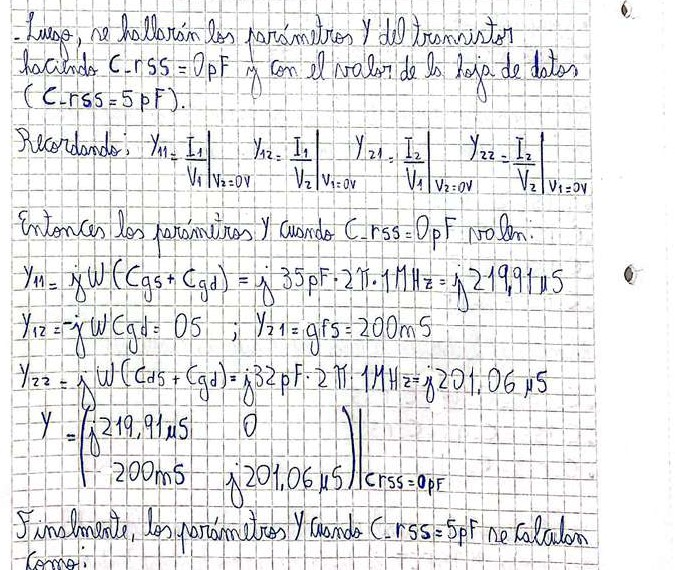 - Luego, se hallarán los parámetros Y del transistor
haciendo C-rss = 0pF y con el valor de la hoja de datos
(C-rss = 5pF).
Recordando: Y11 = I1/V1|V2=0V Y12 = I1/V2|V1=0V Y21 = I2/V1|V2=0V Y22 = I2/V2|V1=0V
Entonces los parámetros Y cuando C-rss = 0pF valen:
Y11 = jW(Cgs + Cgd) = j 35pF·2π·1MHz = j219,91µS
Y12 = -jWCgd = 0S ; Y21 = gfs = 200mS
Y22 = jW(Cds + Cgd) = j32pF·2π·1MHz = j201,06µS
Y = (j219,91µS 0
200mS j201,06µS)|Crss=0pF
Finalmente, los parámetros Y cuando C-rss = 5pF se calculan
como: